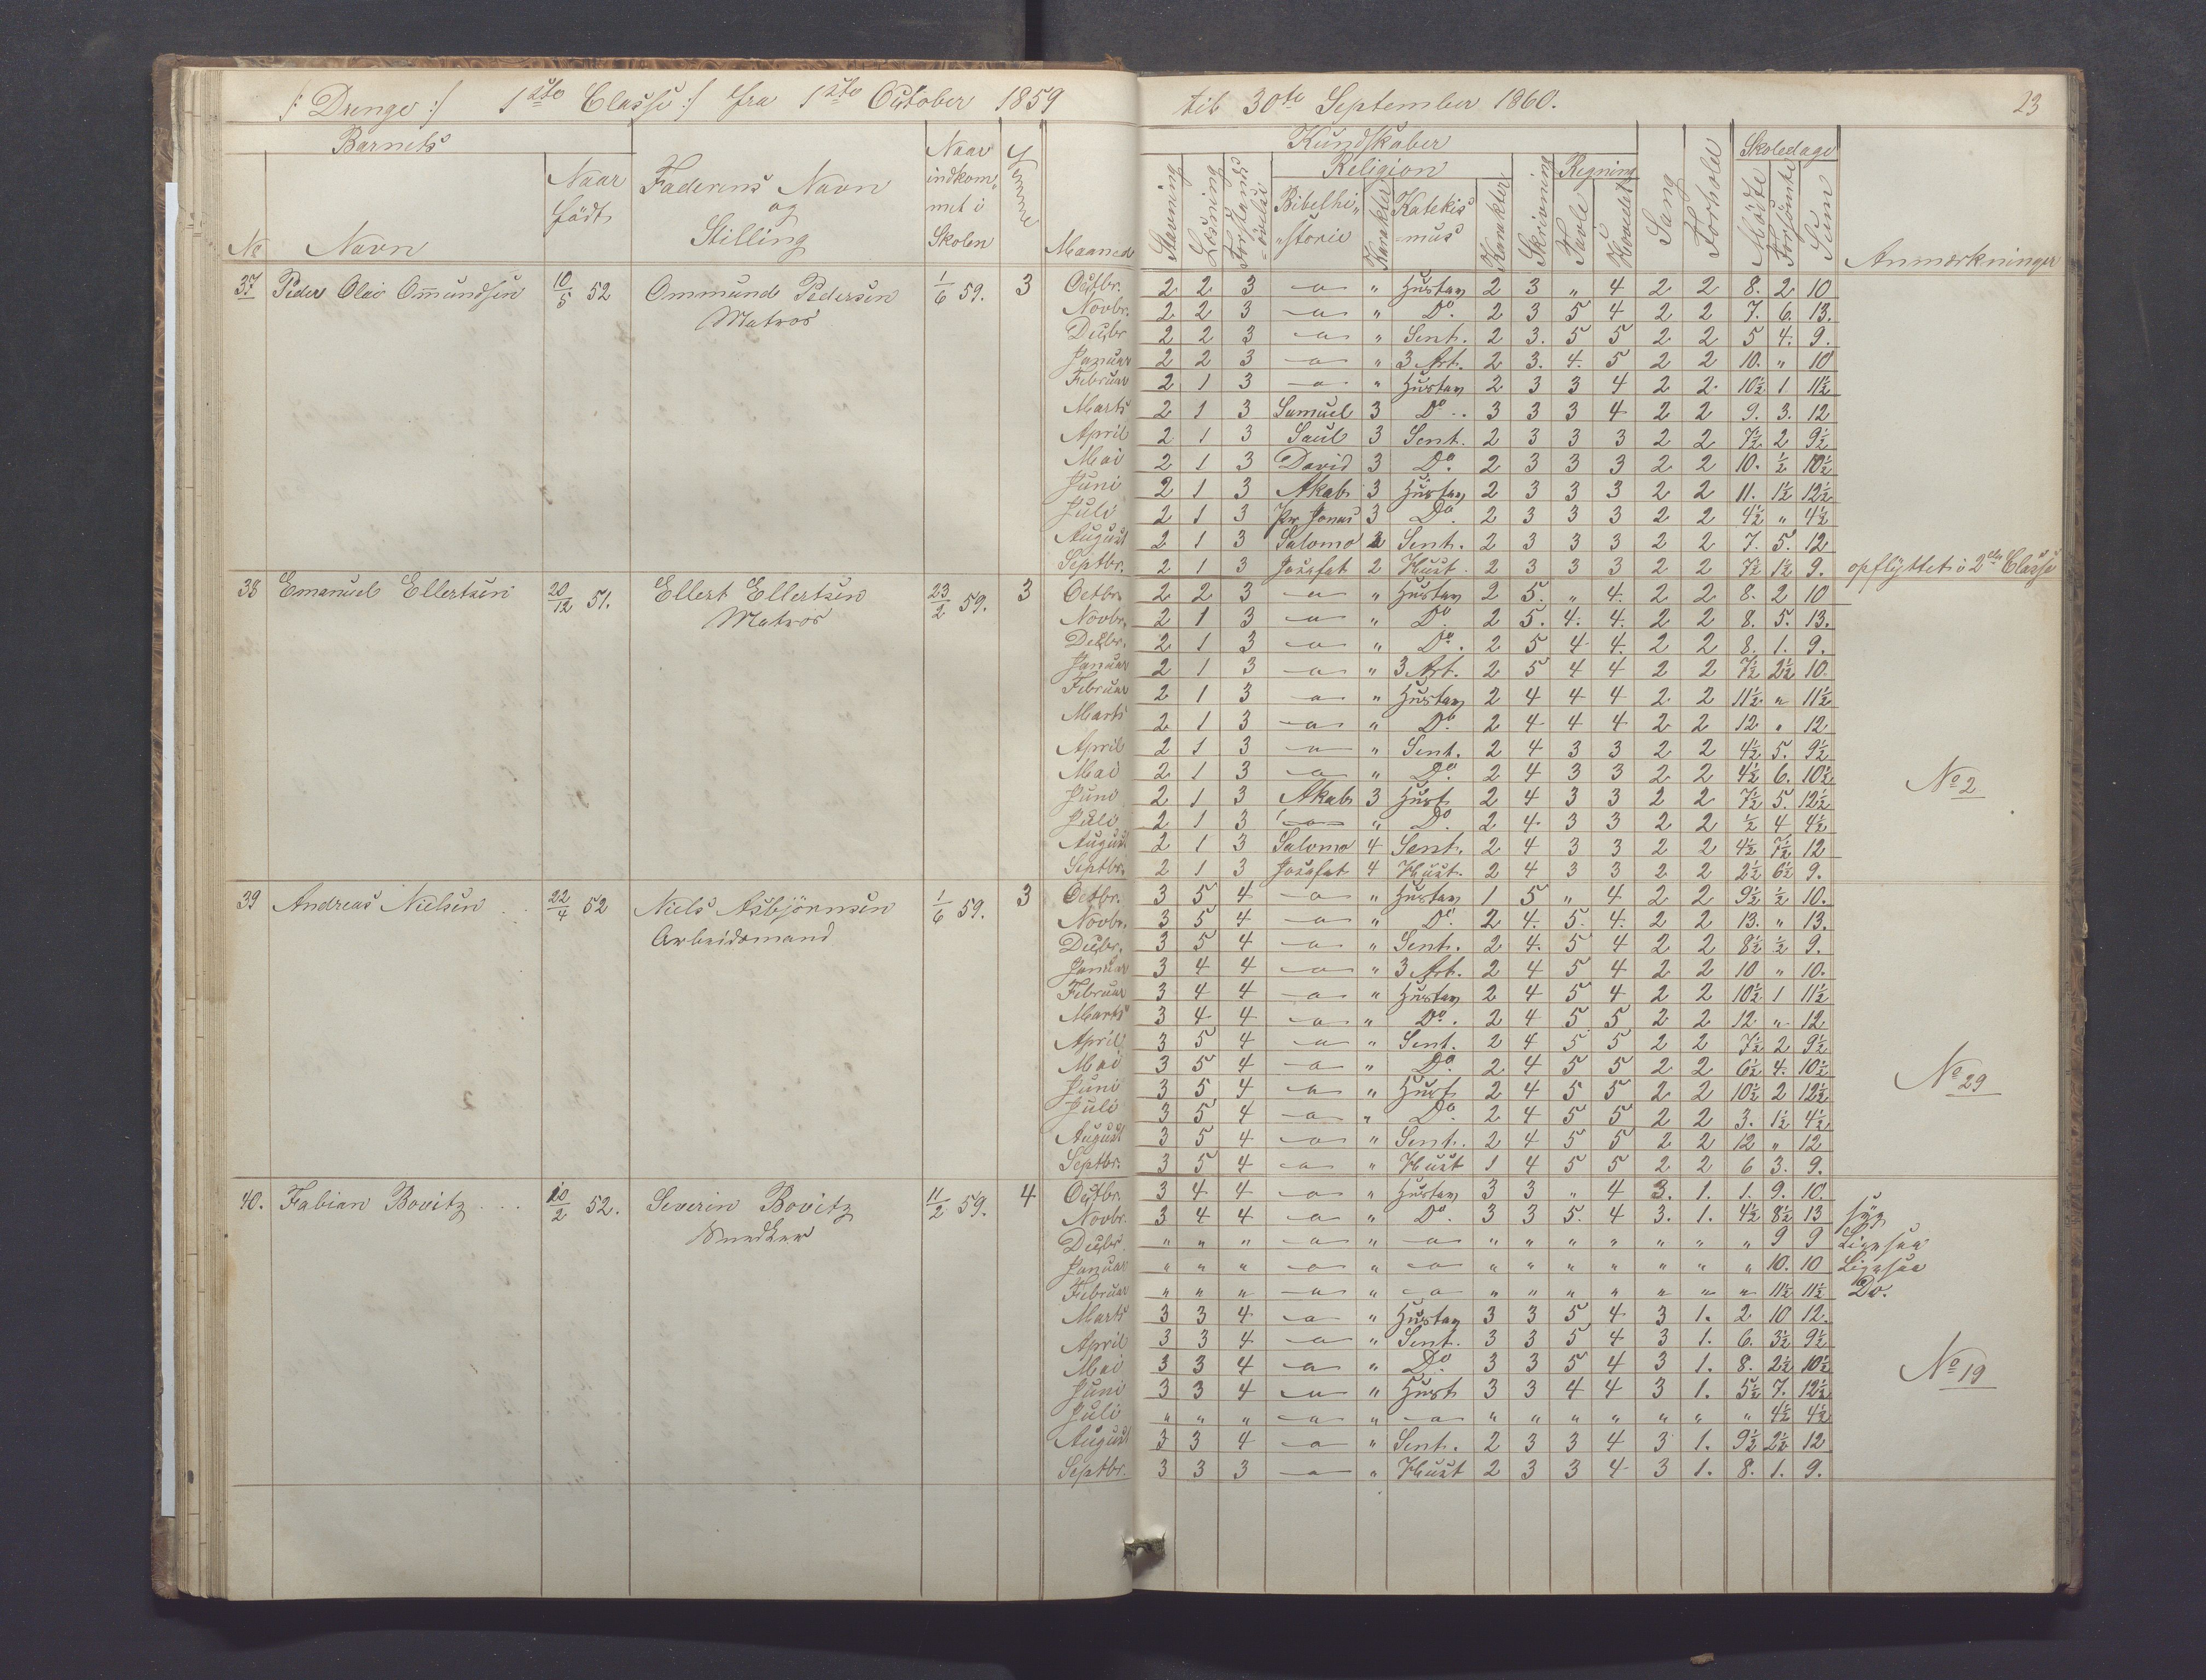 /: Drenge :/ 1ste Classe :/ fra 1ste October 1859 til 30te September 1860. 23
Barnets Kundskaber Skoledage
No Navn Naar födt Faderens Navn og Stilling Naar indkommet i Skolen Evne Maaned Stavning Læsning Forstandsövelse Religion Bibelhistorie Karakter Katekismus Karakter Skrivning Regning Tavle Hovedet Sang Forhold Mödte Forsömte Sum Anmærkninger
37 Peder Olai Om̄undsen 10/5 52 Ommund Pedersen 1/6 59. 3 Octbr. 2 2 3 — " Hustav 2 3 " 4 2 2 8. 2 10
Matros Novbr. 2 2 3 — " Do. 2 3 5 4 2 2 7. 6. 13.
Decbr 2 2 3 — " Sent. 2 3. 5 5 2 2 5 4. 9.
Januar 2 2 3 — " 3 Art. 2 3. 4. 5 2 2 10. " 10
Februar 2 1 3 — " Hustav 2 3 3 4 2 2. 10½ 1 11½
Marts 2 1 3 Samuel 3 Do.. 3 3 3 4 2 2 9. 3. 12
April 2 1 3 Saul 3 Sent. 2 3 3 3 2 2 7½ 2 9½
Mai 2 1 3 David 3 Do. 2 3 3 3 2 2 10. ½ 10½
Juni 2 1 3 Akab 3 Hustav 2 3 3 3 2 2 11. 1½ 12½
Juli 2 1 3 Pr. Jonas 3 Do. 2 3 3 3 2 2 4½ " 4½
August 2 1 3 Salomo 2 Sent. 2 3 3 3 2 2 7. 5. 12
Septbr. 2 1 3 Josafat 2 Hust. 2 3 3 3 2 2 7½ 1½ 9. opflyttet i 2den Classe
38 Emanuel Ellertsen 20/12 51. Ellert Ellertsen 23/2 59. 3 Octbr. 2 2 3 — " Hustav 2 5. " 4. 2 2 8. 2 10
Matros Novbr. 2 1 3 — " Do. 2 5. 4. 4. 2 2 8. 5. 13.
Decbr. 2 1 3 — " Do. 2 5 4 4. 2 2 8. 1. 9.
Januar 2 1 3 — " 3 Art. 2 5 4 4 2 2 7½ 2½ 10.
Februar 2 1 3 — " Hustav 2 4 4 4 2 2 11½ " 11½
Marts 2 1 3 — " Do. 2 4 4 4 2 2 12 " 12
April 2 1 3 — " Sent. 2 4 3 3 2 2 4½ 5. 9½
Mai 2 1 3 — " Do. 2 4 3 3 2 2 4½ 6. 10½ No 2
Juni 2 1 3 Akab 3 Hust 2 4 3 3 2 2 7½ 5. 12½
Juli 2 1 3 — " Do. 2 4. 3 3 2 2 ½ 4 4½
August 2 1 3 Salomo 4 Sent. 2 4 3 3 2 2 4½ 7½ 12
Septbr. 2 1 3 Josafat 4 Hust. 2 4 3 3 2 2 2½ 6½ 9.
39 Andreas Nielsen 22/4 52 Niels Asbjörnsen 1/6 59. 3 Octbr. 3 5 4 — " Hustav 1 5 " 4 2 2 9½ ½ 10.
Arbeidsmand Novbr. 3 5 4 — " Do. 2 4. 5. 4. 2 2 13. " 13.
Decbr. 3 5 4 — " Sent. 2 4. 5 4 2 2 8½ ½ 9.
Januar 3 4 4 — " 3 Art. 2 4 5 4 2 2 10 " 10.
Februar 3 4 4 — " Hustav 2 4 5 4 2 2 10½ 1 11½
Marts 3 4 4 — " Do. 2 4 5 5 2 2 12 " 12
April 3 5 4 — " Sent. 2 4 5 5 2 2 7½ 2 9½
Mai 3 5 4 — " Do. 2 4 5 5 2 2 6½ 4. 10½ No 29
Juni 3 5 4 — " Hust 2 4 5 5 2 2 10½ 2 12½
Juli 3 5 4 — " Do. 2 4 5 5 2 2 3. 1½ 4½
August 3 5 4 — " Sent. 2 4 5 5 2 2 12 " 12
Septbr. 3 5 4 — " Hust 1 4 5 5 2 2 6 3. 9.
40. Fabian Bovitz 10/2 52. Severin Bovitz 11/2 59. 4 Octbr. 3 4 4 — " Hustav 3 3 " 4 3. 1. 1. 9. 10.
Novbr. 3 4 4 — " Do. 3 3 5. 4 3. 1. 4½ 8½ 13 syg
Decbr. " " " — " — " " " " " " " 9 9 Ligesaa
Januar " " " — " — " " " " " " " 10. 10 Ligesaa
Februar " " " — " — " " " " " " " 11½ 11½ Do.
Marts 3 3 4 — " Hustav 3 3 5 4 3 1. 2 10 12.
April 3 3 4 — " Sent. 3 3 5 4 3 1. 6. 3½ 9½
Mai 3 3 4 — " Do. 3 3 5 4 3 1. 8. 2½ 10½ No 19
Juni 3 3 4 — " Hust 3 3 4 4 3 1. 5½ 7. 12½
Juli " " " — " — " " " " " " " 4½ 4½
August 3 3 4 — " Sent. 2 3 3 4 3 1. 9½ 2½ 12
Septbr. 3 3 3 — " Hust 2 3 3 4 3 1. 8. 1. 9.